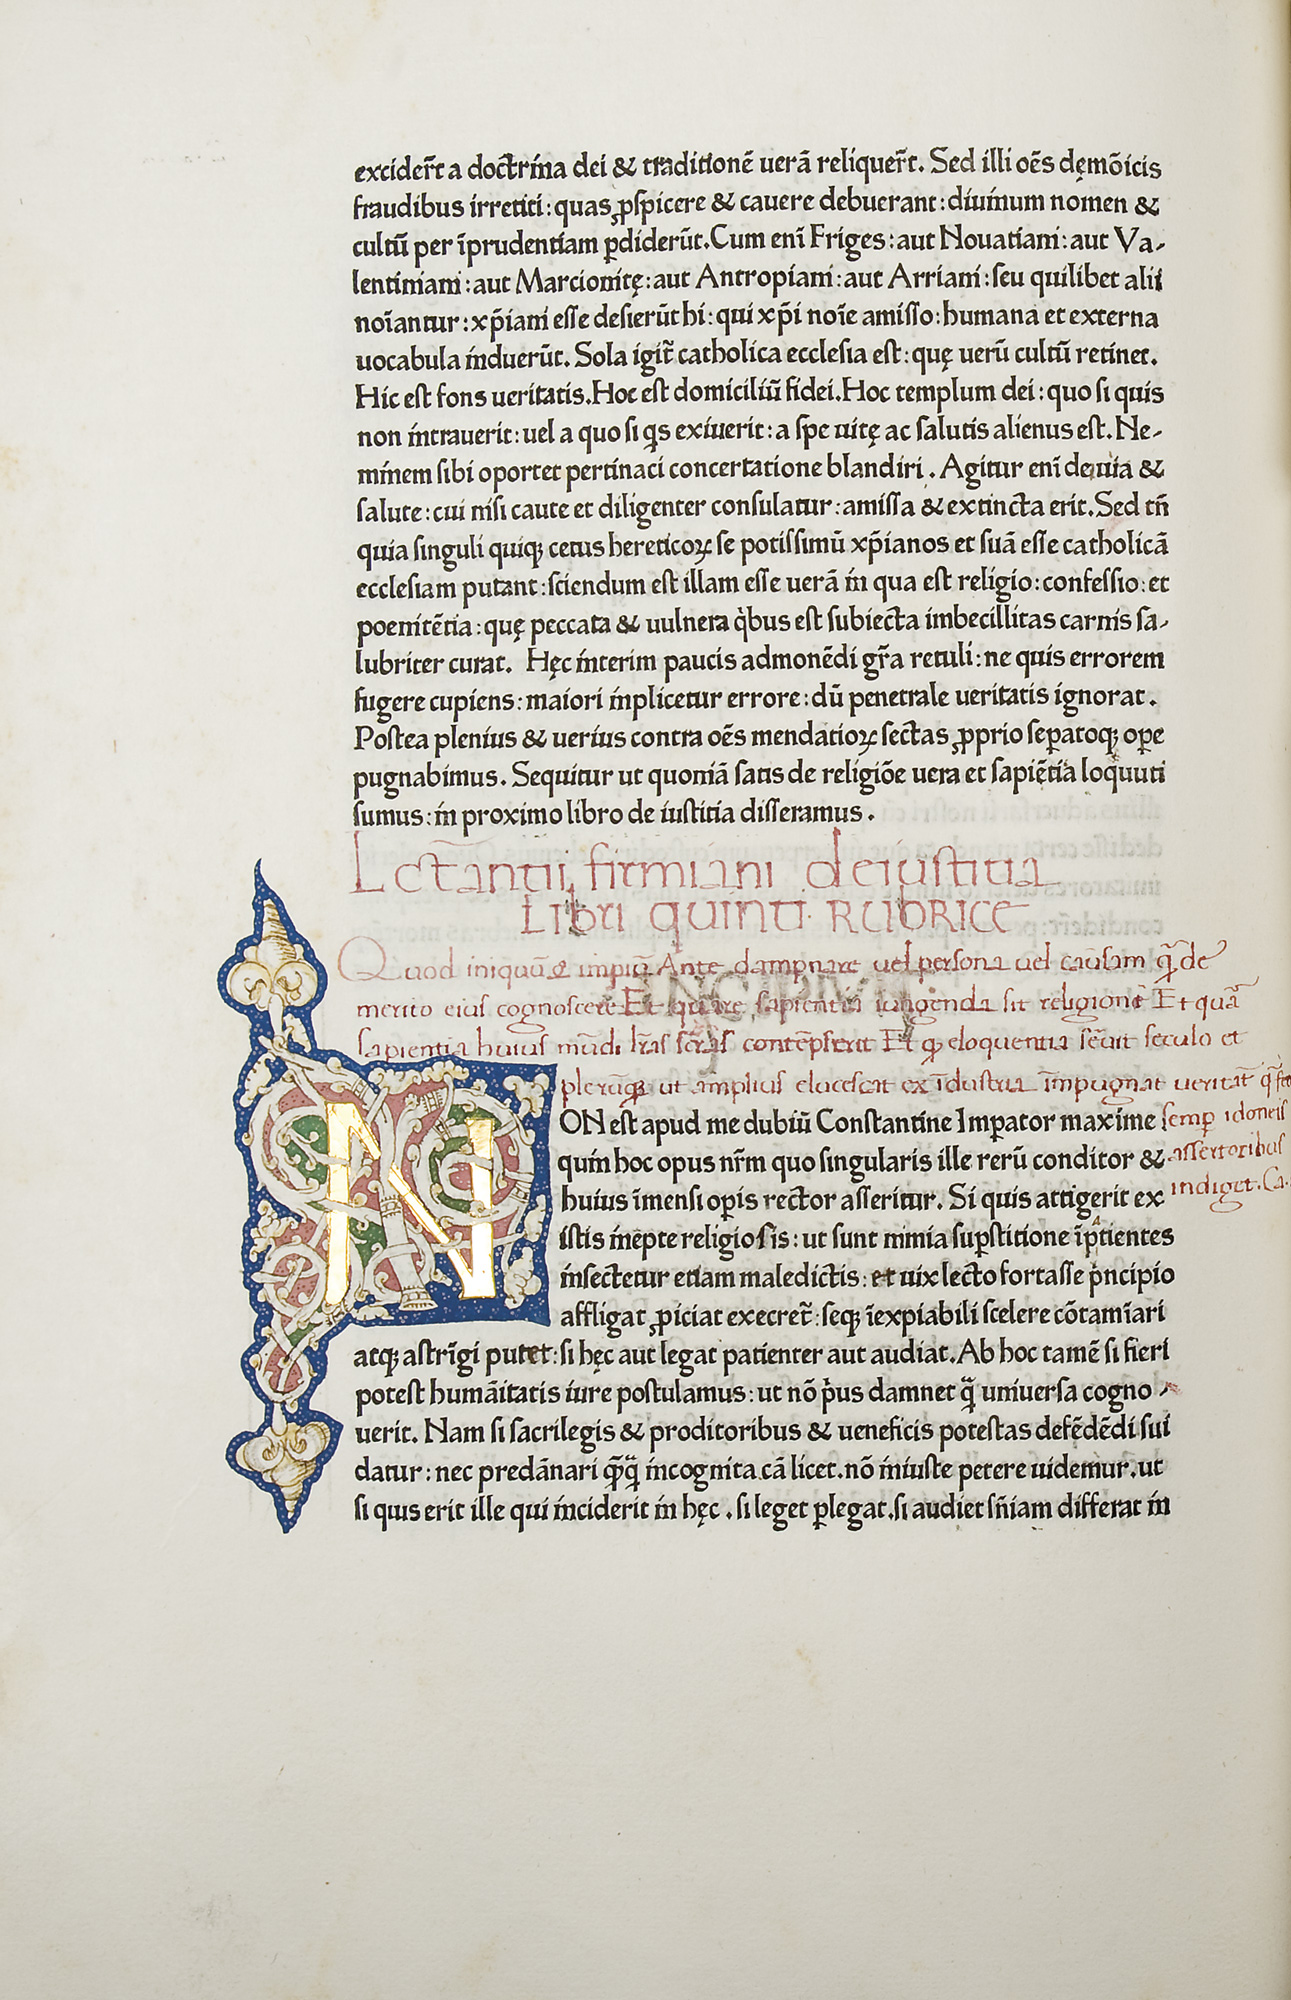 excider̃t a doctrina dei & traditionẽ uerã reliquer̃t. Sed illi oẽs dęmõicis
fraudibus irretiti: quas ꝓspicere & cauere debuerant: diuinum nomen &
cultũ per ĩprudentiam ꝑdiderũt. Cum eni Friges: aut Nouatiani: aut Va-
lentiniani: aut Marcionitę: aut Antropiani: aut Arriani: seu quilibet alii
noĩantur: xp̃iani esse desierũt hi: qui xp̃i noĩe amisso: humana et externa
uocabula induerũt. Sola igit̃ catholica ecclesia est: quę uerũ cultũ retinet.
Hic est fons ueritatis. Hoc est domiciliũ fidei. Hoc templum dei: quo si quis
non intrauerit: uel a quo si q̇s exiuerit: a spe uitę ac salutis alienus est. Ne-
minem sibi oportet pertinaci concertatione blandiri. Agitur eni de uia &
salute: cui nisi caute et diligenter consulatur: amissa & extincta erit. Sed tñ
quia singuli quiqꝫ cetus hereticoꝝ se potissimũ xp̃ianos et suã esse catholicã
ecclesiam putant: sciendum est illam esse uerã in qua est religio: confessio: et
poenitẽtia: quę peccata & uulnera q̇bus est subiecta imbecillitas carnis sa-
lubriter curat. Hęc interim paucis admonẽdi gr̃a retuli: ne quis errorem
fugere cupiens: maiori inplicetur errore: dũ penetrale ueritatis ignorat.
Postea plenius & uerius contra oẽs mendatioꝝ sectas ꝓprio seꝑatoqꝫ oꝑe
pugnabimus. Sequitur ut quoniã satis de religiõe uera et sapiẽtia loquuti
sumus: in proximo libro de iustitia disseramus.
Lctantii firmiani de iustitia
Libri quinti RUBRICE
Quod iniquũ & impiũ Ante dampnare uel persona uel causam q̃ de
merito eius cognoscere Et quare sapientia iungenda sit religione Et quã
sapientia huius mũdi lr̃as sc̃r̃as contẽpserit Et ꝙ eloquentia seuit seculo et
plerũqꝫ ut amplius elucescat ex ĩdustria impugnat ueritat̃
semꝑ idoneis
assertoribus
indiget. Ca.
INCIPIVNT
NON est apud me dubiũ Constantine Imꝑator maxime
quin hoc opus nr̃m quo singularis ille rerũ conditor &
huius ĩmensi opis rector asseritur. Si quis attigerit ex
istis inepte religiosis: ut sunt nimia suꝑstitione ĩpatientes
insectetur etiam maledictis: et uix lecto fortasse p̃ncipio
affligat ꝓiciat execret̃: seqꝫ ĩexpiabili scelere cõtamĩari
atqꝫ astrĩgi putet: si hęc aut legat patienter aut audiat. Ab hoc tamẽ si fieri
potest humãitatis iure postulamus: ut nõ p̃us damnet q̃ uniuersa cogno-
uerit. Nam si sacrilegis & proditoribus & ueneficis potestas defẽdẽdi sui
datur: nec predãnari q̃q̃ incognita cã licet. nõ iniuste petere uidemur. ut
si quis erit ille qui inciderit in hęc. si leget ꝑlegat. si audiet sñiam differat in